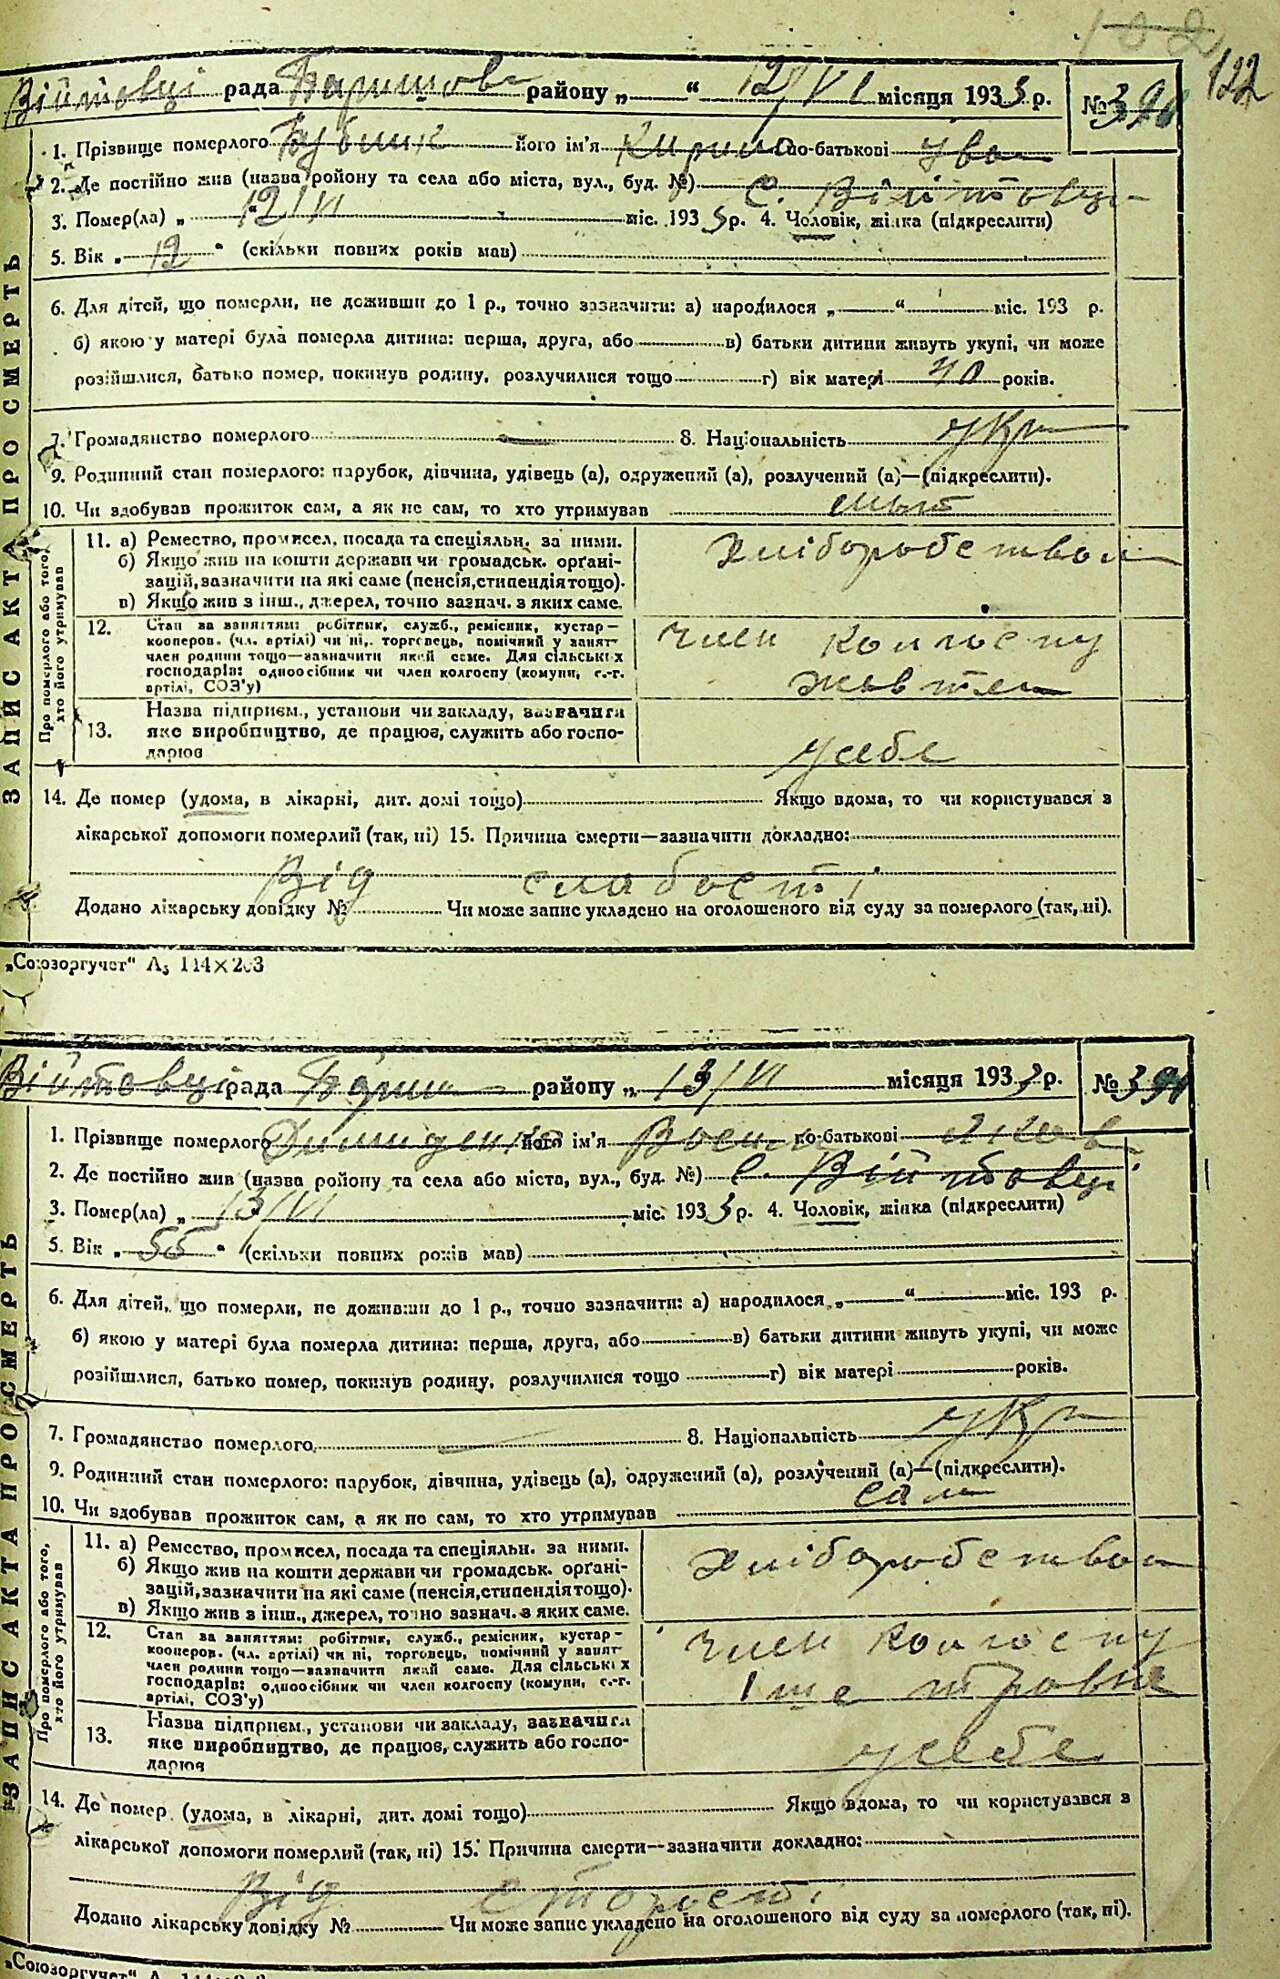 122
122
Війтовці рада Баришовс району „ “ 12/VI місяця 1933 р. № 390
1. Прізвище померлого його ім'я Кирило по-батькові Іван
2. Де постійно жив (назва району та села або міста, вул., буд. №) с. Війтовці
3. Помер(ла) „ 12/VI міс. 1933 р. 4. Чоловік, жінка (підкреслити)
5. Вік „ 12 “ (скільки повних років мав)
6. Для дітей, що померли, не доживши до 1 р., точно зазначити: а) народилося „ “ міс. 193 р.
б) якою у матері була померла дитина: перша, друга, або в) батьки дитини живуть укупі, чи може
розійшлися, батько помер, покинув родину, розлучилися тощо г) вік матері 40 років.
7. Громадянство померлого — 8. Національність укр
9. Родинний стан померлого: парубок, дівчина, удівець (а), одружений (а), розлучений (а)—(підкреслити).
10. Чи здобував прожиток сам, а як не сам, то хто утримував
ЗАПИС АКТА ПРО СМЕРТЬ
Про померлого або того, хто його утримував
11. а) Ремество, промисел, посада та спеціяльн. за ними.
б) Якщо жив на кошти держави чи громадськ. орґані-
зацій, зазначити на які саме (пенсія, стипендія тощо).
в) Якщо жив з інш., джерел, точно зазнач. з яких саме.
Хліборобством
12. Стан за заняттям: робітник, служб., ремісник, кустар-
кооперов. (чл. артілі) чи ні, торговець, помічний у занят-
член родини тощо—зазначити який саме. Для сільських
господарів: одноосібник чи член колгоспу (комуни, с.-г.
артілі, СОЗ'у)
член колгоспу
жовтень
13. Назва підприєм., установи чи закладу, зазначити
яке виробництво, де працює, служить або госпо-
дарює
у себе
14. Де помер (удома, в лікарні, дит. домі тощо) Якщо вдома, то чи користувався з
лікарської допомоги померлий (так, ні) 15. Причина смерти—зазначити докладно:
Від слабості
Додано лікарську довідку № Чи може запис укладено на оголошеного від суду за померлого (так, ні).
„Союзоргучет“ А₅ 114×203
Війтовці рада Бариш району „ 13/VI місяця 1933 р. № 391
1. Прізвище померлого його ім'я по-батькові Яков
2. Де постійно жив (назва району та села або міста, вул., буд. №) с. Війтовці
3. Помер(ла) „ 13/VI міс. 1933 р. 4. Чоловік, жінка (підкреслити)
5. Вік „ 55 “ (скільки повних років мав)
6. Для дітей, що померли, не доживши до 1 р., точно зазначити: а) народилося „ “ міс. 193 р.
б) якою у матері була померла дитина: перша, друга, або в) батьки дитини живуть укупі, чи може
розійшлися, батько помер, покинув родину, розлучилися тощо г) вік матері років.
7. Громадянство померлого 8. Національність укр
9. Родинний стан померлого: парубок, дівчина, удівець (а), одружений (а), розлучений (а)—(підкреслити).
10. Чи здобував прожиток сам, а як не сам, то хто утримував сам
ЗАПИС АКТА ПРО СМЕРТЬ
Про померлого або того, хто його утримував
11. а) Ремество, промисел, посада та спеціяльн. за ними.
б) Якщо жив на кошти держави чи громадськ. орґані-
зацій, зазначити на які саме (пенсія, стипендія тощо).
в) Якщо жив з інш., джерел, точно зазнач. з яких саме.
Хліборобством
12. Стан за заняттям: робітник, служб., ремісник, кустар-
кооперов. (чл. артілі) чи ні, торговець, помічний у занят-
член родини тощо—зазначити який саме. Для сільських
господарів: одноосібник чи член колгоспу (комуни, с.-г.
артілі, СОЗ'у)
член колгоспу
1ше травня
13. Назва підприєм., установи чи закладу, зазначити
яке виробництво, де працює, служить або госпо-
дарює
у себе
14. Де помер (удома, в лікарні, дит. домі тощо) Якщо вдома, то чи користувався з
лікарської допомоги померлий (так, ні) 15. Причина смерти—зазначити докладно:
Від старості
Додано лікарську довідку № Чи може запис укладено на оголошеного від суду за померлого (так, ні).
„Союзоргучет“